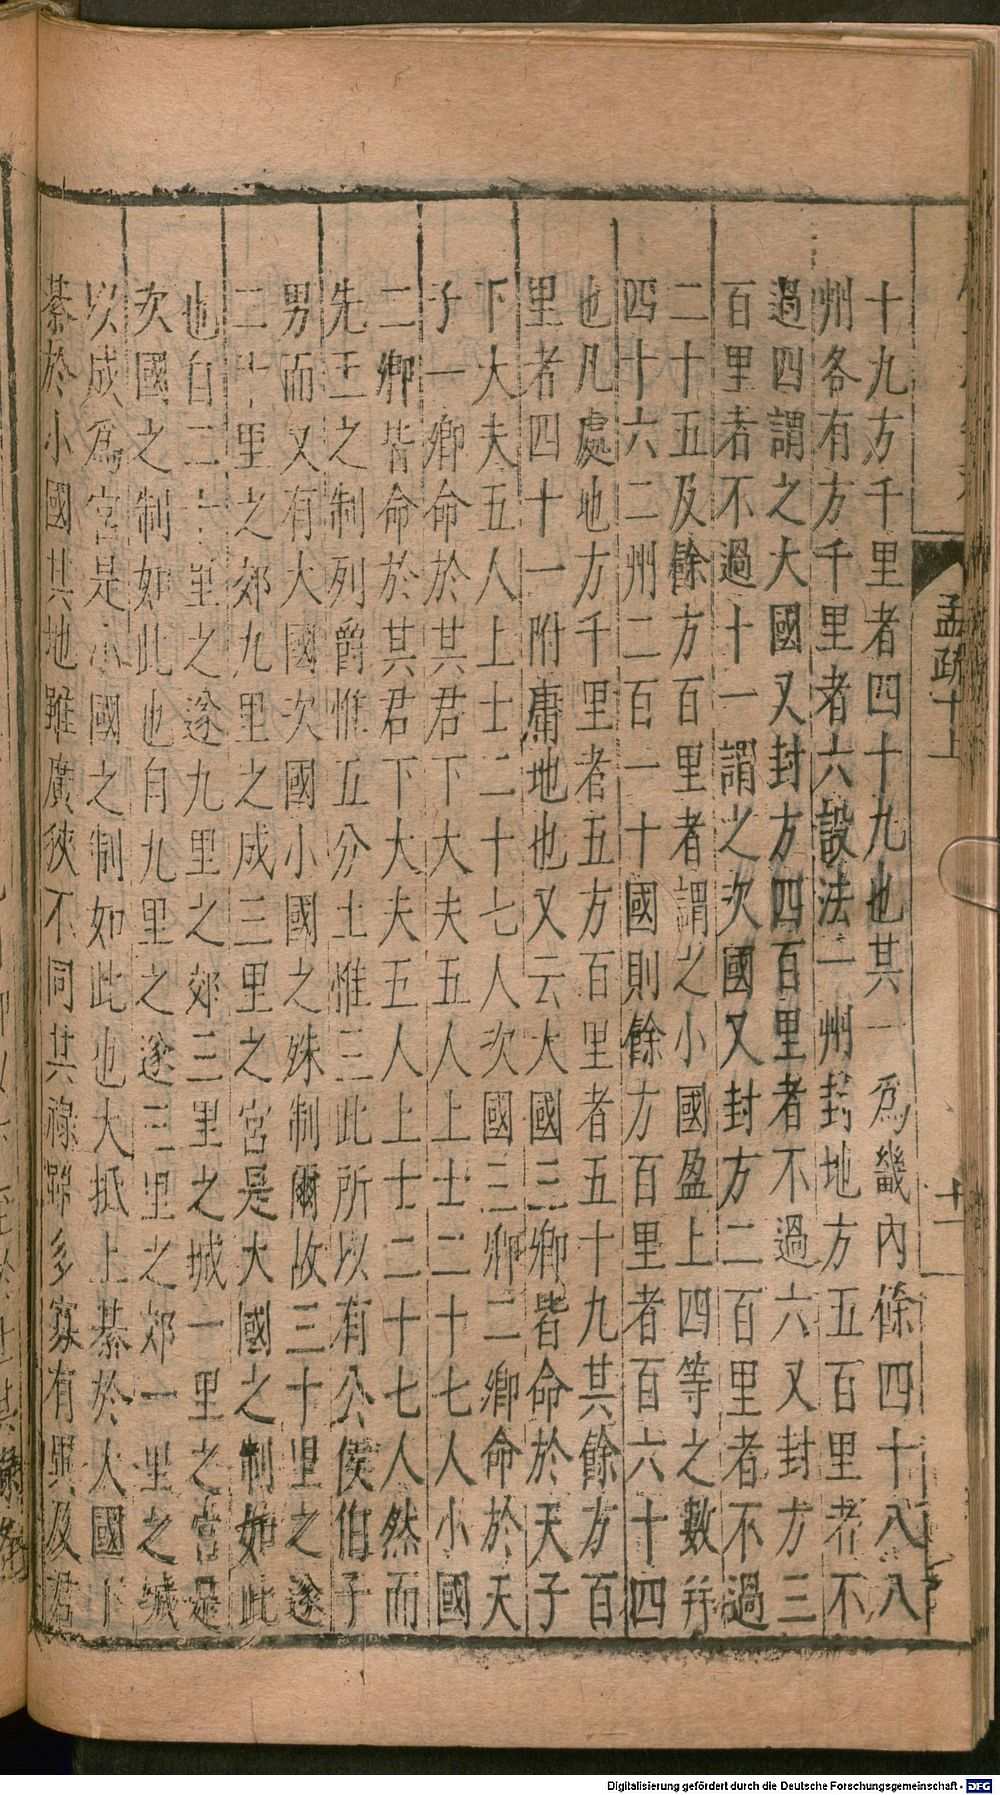 孟疏十上
十一
十九方千里者四十九也其一爲畿內餘四十八八
州各有方千里者六設法一州封地方五百里者不
過四謂之大國又封方四百里者不過六又封方三
百里者不過十一謂之次國又封方二百里者不過
二十五及餘方百里者謂之小國盈上四等之數并
四十六二州二百一十國則餘方百里者百六十四
也凡處地方千里者五方百里者五十九其餘方百
里者四十一附庸地也又云大國三卿皆命於天子
下大夫五人上士二十七人次國三卿二卿命於天
子一卿命於其君下大夫五人上士二十七人小國
二卿皆命於其君下大夫五人上士二十七人然而
先王之制列爵惟五分土惟三此所以有公侯伯子
男而又有大國次國小國之殊制爾故三十里之遂
二十里之郊九里之成三里之宮是大國之制如此
也自二十里之遂九里之郊三里之城一里之宮是
次國之制如此也自九里之遂三里之郊一里之城
以成爲宮是小國之制如此也大抵上綦於大國下
綦於小國其地雖廣狹不同其祿雖多寡有異及君
Digitalisierung gefördert durch die Deutsche Forschungsgemeinschaft - DFG